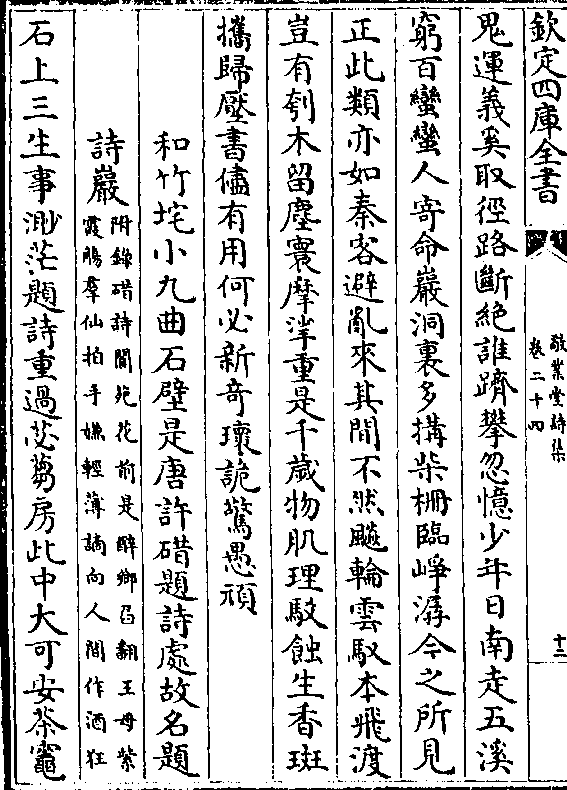 欽定四庫全書
敬業堂詩集
卷二十四
十二
鬼運義奚取徑路斷絶誰躋攀忽憶少年日南走五溪
窮百蠻蠻人寄命巖洞裏多搆柴柵臨崢潺今之所見
正此類亦如秦客避亂來其間不然飈輪雲馭本飛渡
豈有刳木留塵寰摩挲重是千歲物肌理駮蝕生香斑
攜歸壓書儘有用何必新奇瓌詭驚愚頑
和竹垞小九曲石壁是唐許碏題詩處故名題
詩巖
附錄碏詩閬苑花前是醉鄉舀翻王母紫
霞觴羣仙拍手嫌輕薄謫向人間作酒狂
石上三生事渺茫題詩重過苾蒭房此中大可安茶竈